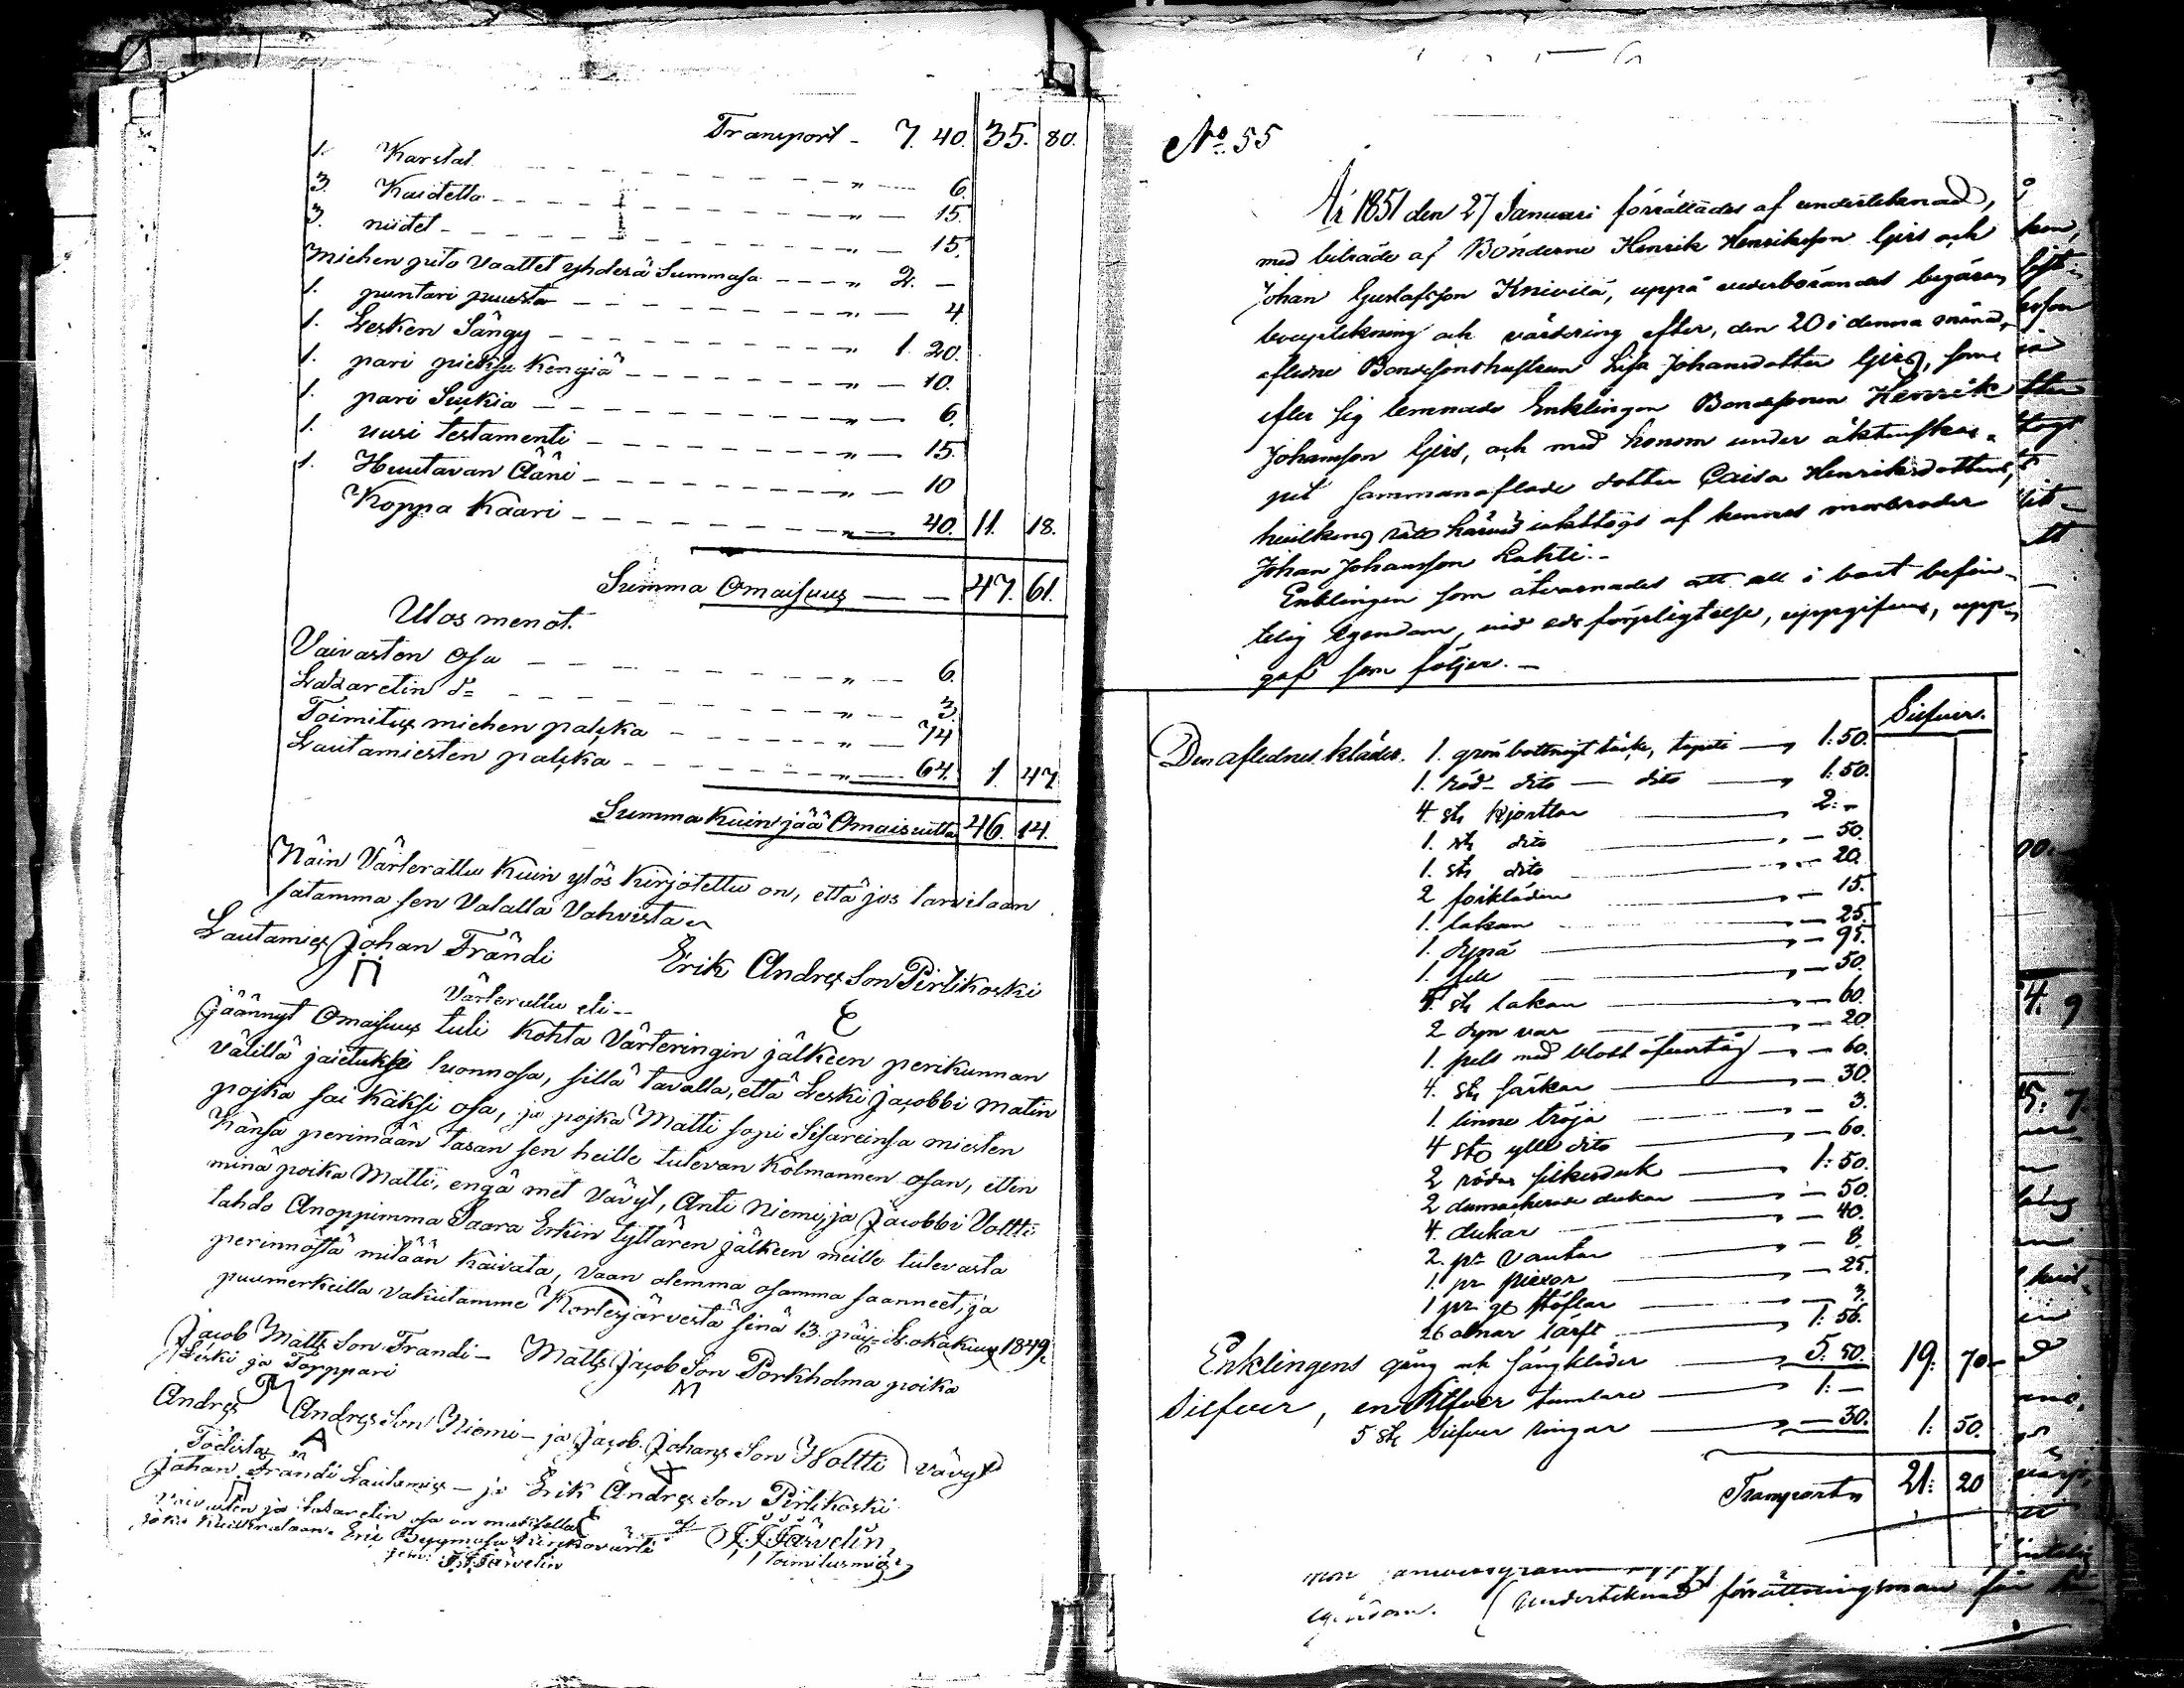 Transport - 7. 40. 35. 80.
1. Karstat " 6.
3. Kaidetta " 15.
3. niidet " 15.
Miehen pito Vaattet yhdesä Summasa " 2. -
1. puntari puusta " 4.
1. Lesken Sängy " 1. 20.
1. pari pieksu Kengiä " 10.
1. pari Sukkia " 6.
1. uusi testamenti " 15.
1. Huutavan Ääni " 10
Koppa Kääri " 40. 11. 18.
Summa Omaisuus 47. 61.
Ulos menot.
Vaivasten Osa " 6.
Lazaretin d:o " 3.
Toimitus miehen palkka " 74
Lautamiesten palkka " 64. 1. 47
Summa Kuin jää Omaisutta 46. 14.
Näin Värterattu Kuin ylös Kirjotettu on, että jos tarvitaan
satamma sen Valalla Vahvista
Lautamies Johan Frändi Erik Andres Son Pirtikoski
Värterattu eli
Jäännyt Omaisuus tuli Kohta Värteringin jälkeen perikunnan
välillä jaetuksi luonnosa, sillä tavalla, että Leski Jacobbi Matin
pojka sai Käksi osa, ja pojka Matti sopi Sisareinsa miesten
Kansa perimään tasan sen heille tulevan Kolmannen osan, etten
minä poika Matti, engä met Vävyt, Anti Niemi, ja Jacobbi Voltti
tahdo Anoppimma Saara Erkin tyttären jälkeen meille tulevasta
perinnöstä mitään Kaivata, vaan olemma osamma saanneet, ja
puumerkeilla vakuutamme Kortesjärvestä sinä 13. päiv Lokakuus 1849.
Jacob Matts Son Frandi - Matts Jacob Son Porkholma poika
Leski ja Torppari
Andres Andres Son Niemi - ja Jacob. Johans Son Woltti vävyt
Todistaa
Johan Frändi Lautamies - ja Erik Andres Son Pirtikoski
vaivasten ja Lazaretin osa on maksettu af J. J. Järvelin,
Eric Kirkovärti toimitusmies
J. J. Järvelin
No. 55
År 1851 den 27 Januari förrättades af undertecknad,
med biträde af Bönderne Henrik Henriksson Girs och
Johan Gustafsson Knivilä, uppå vederbörandes begäran
bouppteckning och värdering efter, den 20 i denna månad,
aflidne Bondesonshustrun Lisa Johansdotter Girs, som
efter sig lemnade Enklingen Bondesonen Henrik
Johansson Girs, och med honom under äktenskap-
pet sammanaflade dotter Caisa Henriksdotter,
hvilkens rätt härvid iakttogs af hennes morbroder
Johan Johansson Lahti.-
Enklingen som åtvarnades att all i boet befin-
telig egendom, vid eds förpligtelse, uppgifva, upp-
gaf som följer. -
Silfver.
Den aflednes kläder. 1. grön bottnigt täcke, tapeti 1: 50.
1. röd- dito - dito 1: 50.
4 st. Kjortlar 2: -
1. st. dito - 50.
1. st. dito - 20.
2 förkläden - 15.
1. lakan - 25.
1. dynä - 95.
1. fell - 50.
5 st. lakan - 60.
2 dyn var - 20
1. pels med blått öfvertäg - 60.
4. st. särkar - 30.
1. linne tröja - 3.
4 st. ylle dito - 60.
2 röda silkesduk 1: 50.
2 damaskerade dukar - 50.
4. dukar - 40.
2. pr vantar - 8.
1. pr piexor - 25.
1 pr gl stöflar - 3.
26 alnar lärft 1: 56.
Enklingens gång och sängkläder 5: 50. 19: 70
Silfver, en silfver tumlare 1: -
5 st. silfver ringar - 30. 1: 50.
Transport 21: 20
egendom. Undertecknad förrättningsman får